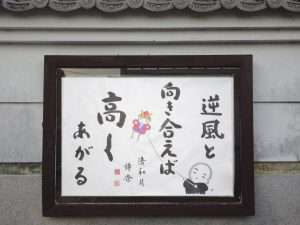 逆風と
向き合えば
高く
あがる
清和月